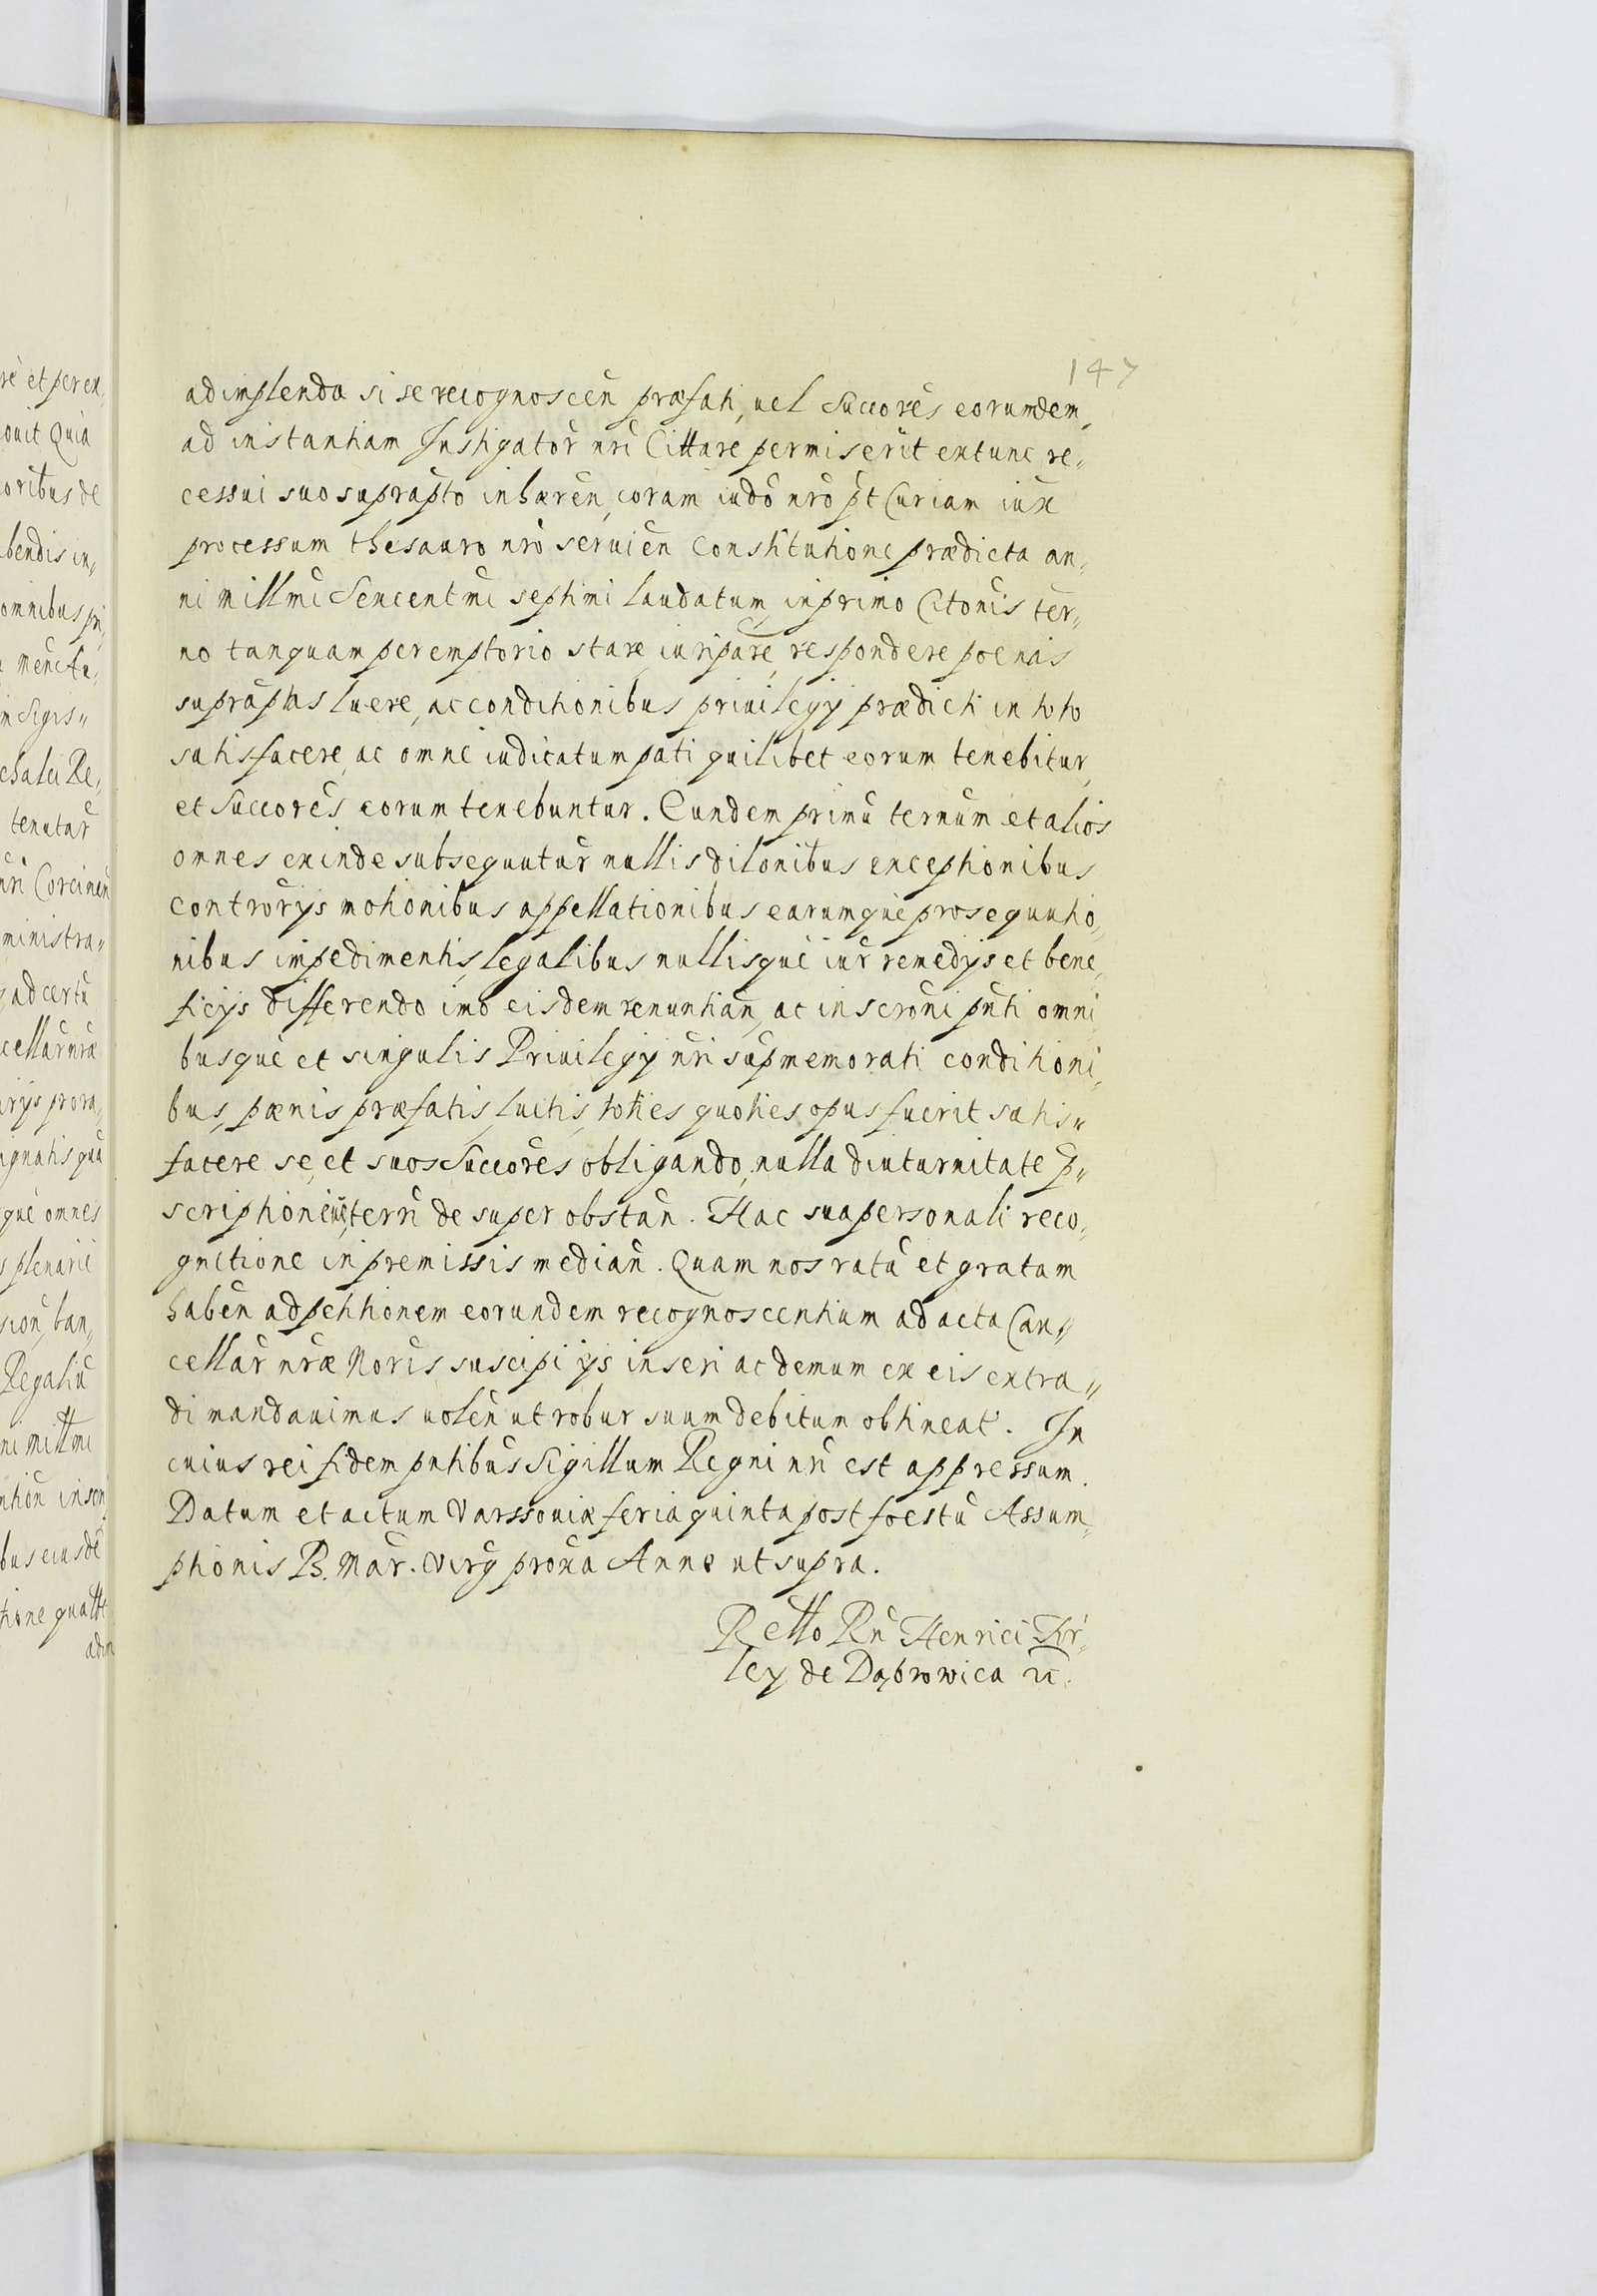 147
adimplenda si se recognoscen̄ præfati, uel Succores eorumdem,
ad instantiam Instigator nri Cittare permiserit extunc re„
cessui suo supraptō inhæren̄, coram iudo nro pt Curiam iux
processum thesauro nro seruien̄ Constitutione prædicta an„
ni millmi Sexcentmi septimi laudatum, in primo Citonis ter„
no tanquam peremptorio stare, iuri pare, respondere poenas
supraptas luere, ac conditionibus priuilegy prædicti in toto
satisfacere, ac omne iudicatum pati quilibet eorum tenebitur,
et Succores eorum tenebuntur. Eundem primu ternum et alios
omnes exinde subsequutur nullis dilonibus exceptionibus
controrys motionibus appellationibus earumque prosequutio„
nibus impedimentis, legalibus nullisque iur remedys et bene„
ficys differendo imo eisdem renuntian̄, ac in scroni pnti omni
busque et singulis Priuilegy nri supmemorati conditioni„
bus, pænis præfatis, luitis, toties quoties opus fuerit satis„
facere se, et suos Succores obligando, nulla diuturnitate p„
scriptione terri de super obstan̄. Hac sua personali reco„
gnitione in premissis median̄. Quam nos ratu et gratam
haben̄ ad petitionem eorundem recognoscentium ad acta Can„
cellar nræ Noris suscipi ys inseri ac demum ex eis extra„
di mandauimus uolen̄ ut robur suum debitum obtineat. In
cuius rei fidem pntibus Sigillum Regni nri est appressum.
Datum et actum Varssouiæ feria quinta post foestu Assum„
ptionis B. Mar. Virg prona Anno ut supra.
Retto Rn Henrici Fir„
ley de Dąbrowica rc.